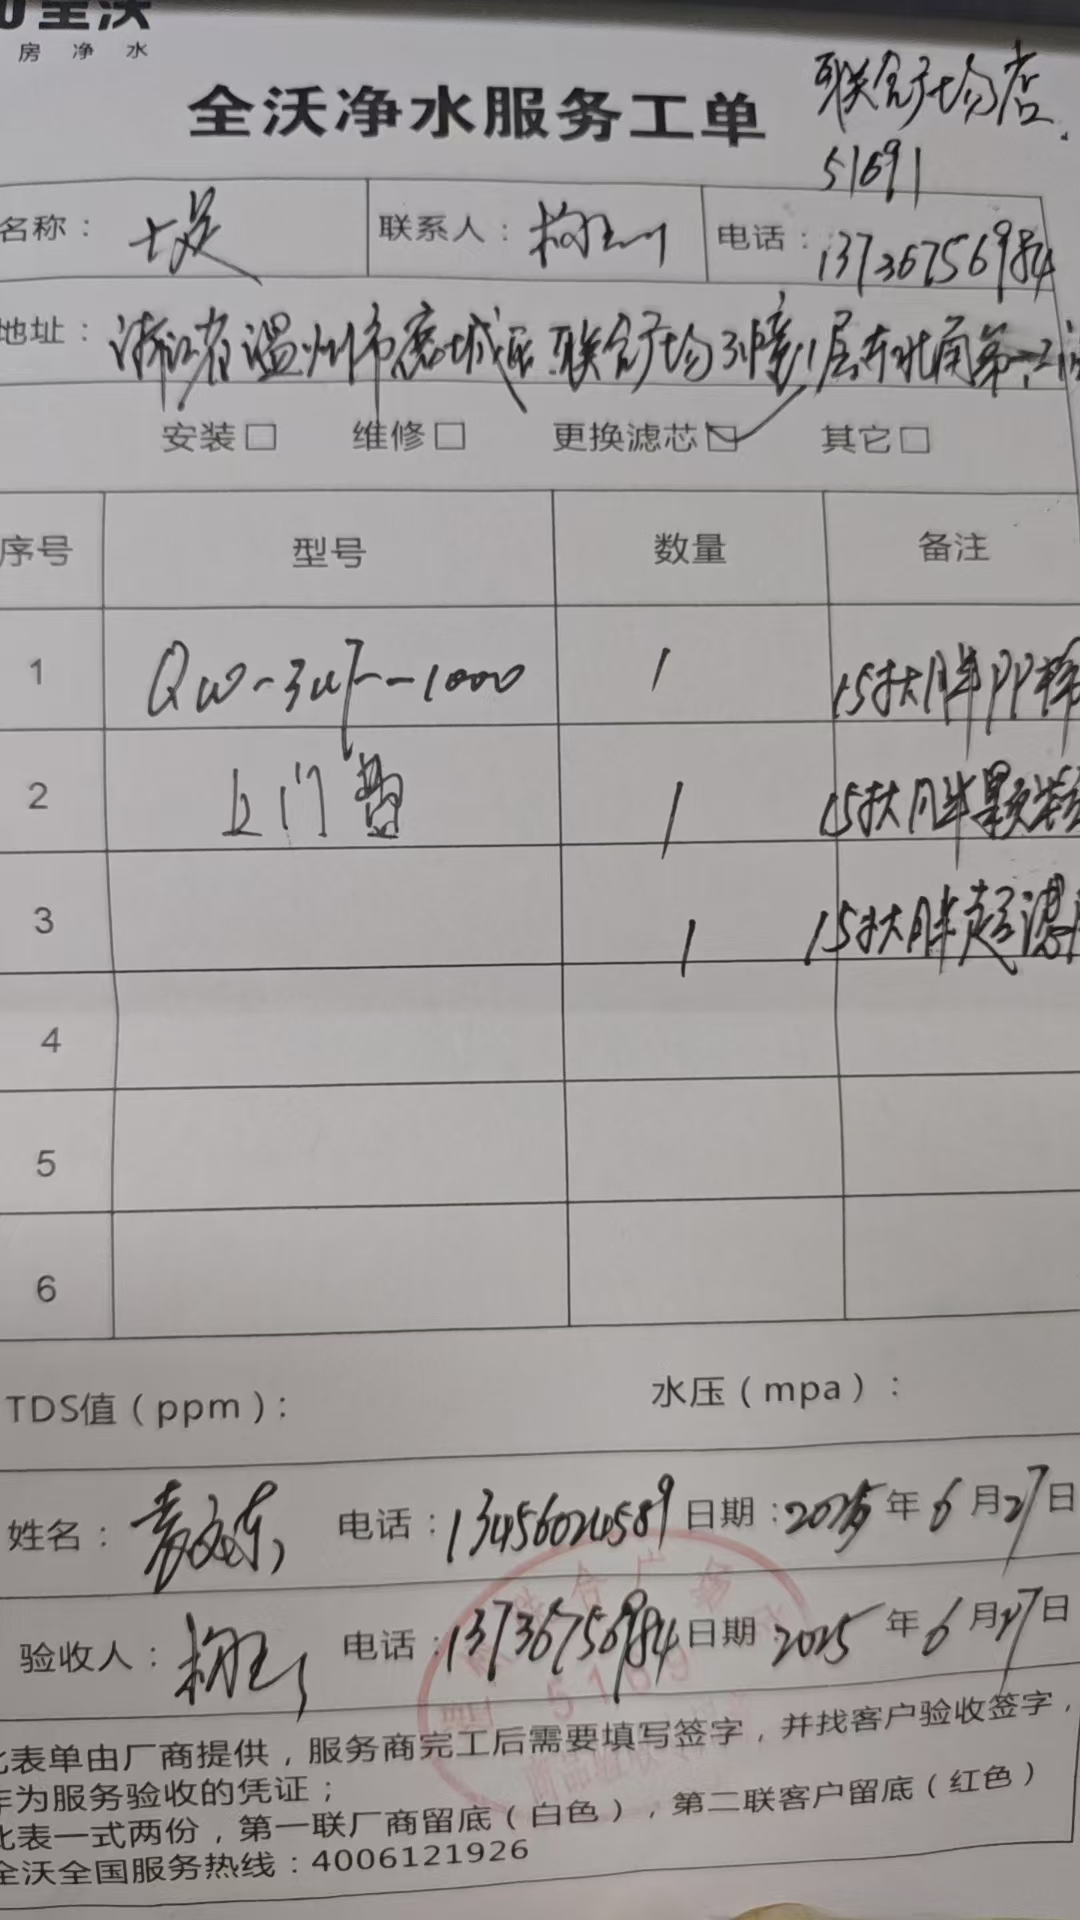 全沃
房净水
全沃净水服务工单
联合广场店
51691
名称：
联系人：
电话：13736756984
地址：浙江省温州市鹿城区联合广场3幢1层东北角第一、二
安装□ 维修□ 更换滤芯☑ 其它□
序号 型号 数量 备注
1 QW-3UF--1000 1 15寸大胖PP棉
2 上门费 1 15寸大胖颗粒
3 1 15寸大胖超滤
4
5
6
TDS值（ppm）： 水压（mpa）：
姓名： 电话：13456024589 日期：2025年6月27日
验收人： 电话：13736756984 日期 2025年6月27日
此表单由厂商提供，服务商完工后需要填写签字，并找客户验收签字，
作为服务验收的凭证；
此表一式两份，第一联厂商留底（白色），第二联客户留底（红色）
全沃全国服务热线：4006121926